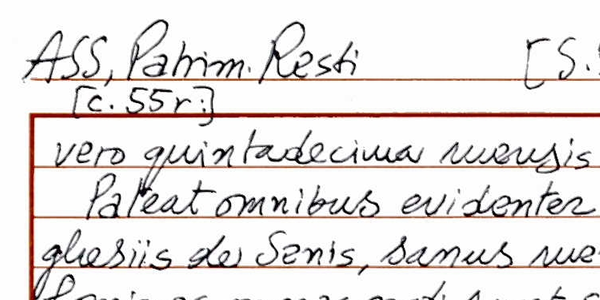 ASS, Patrim. Resti [S.
[c. 55r.]
vero quintadecima mensis
Pateat omnibus evidenter
ghesiis de Senis, sanus